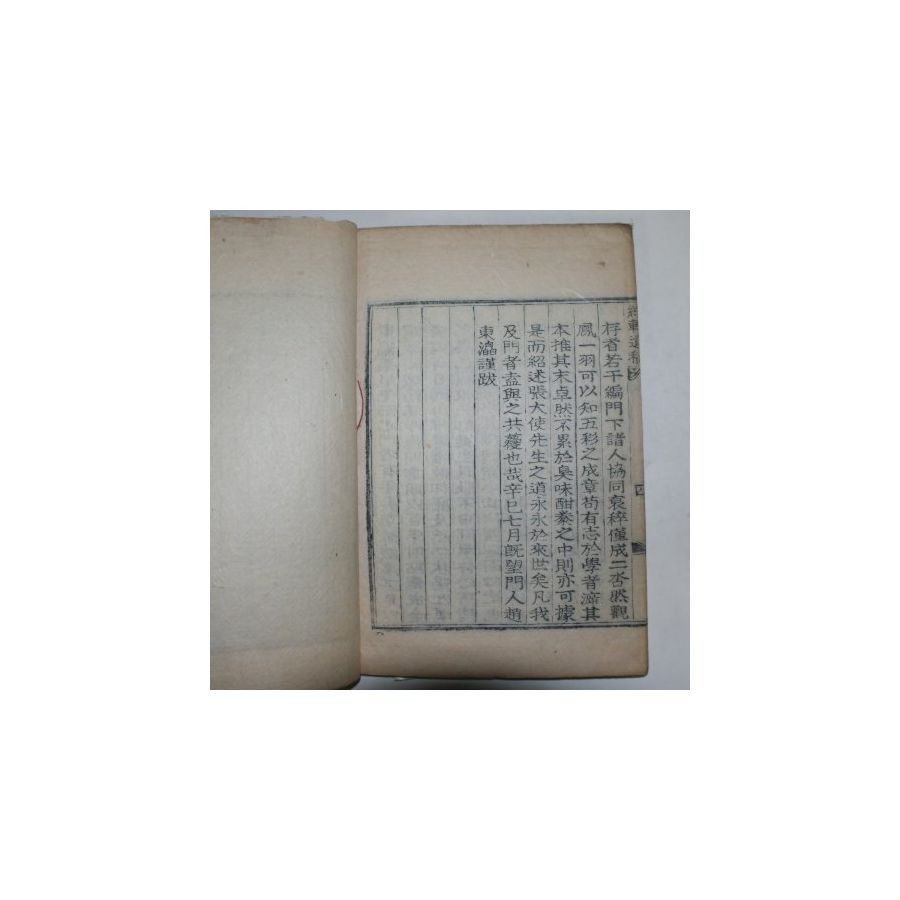 存者若干編門下諸人協同裒稡僅成二沓然觀
鳳一羽可以知五彩之成章苟有志於學者泝其
本推其末卓然不累於臭味酣豢之中則亦可據
是而紹述張大使先生之道永永於來世矣凡我
及門者盍與之共蘉也哉辛巳七月旣望門人趙
東㶏謹跋
遺稿
四